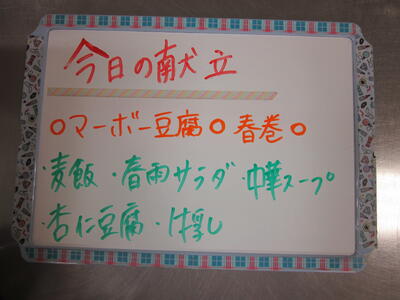 今日の献立
○マーボー豆腐○春巻○
・麦飯・春雨サラダ・中華スープ
・杏仁豆腐・牛乳